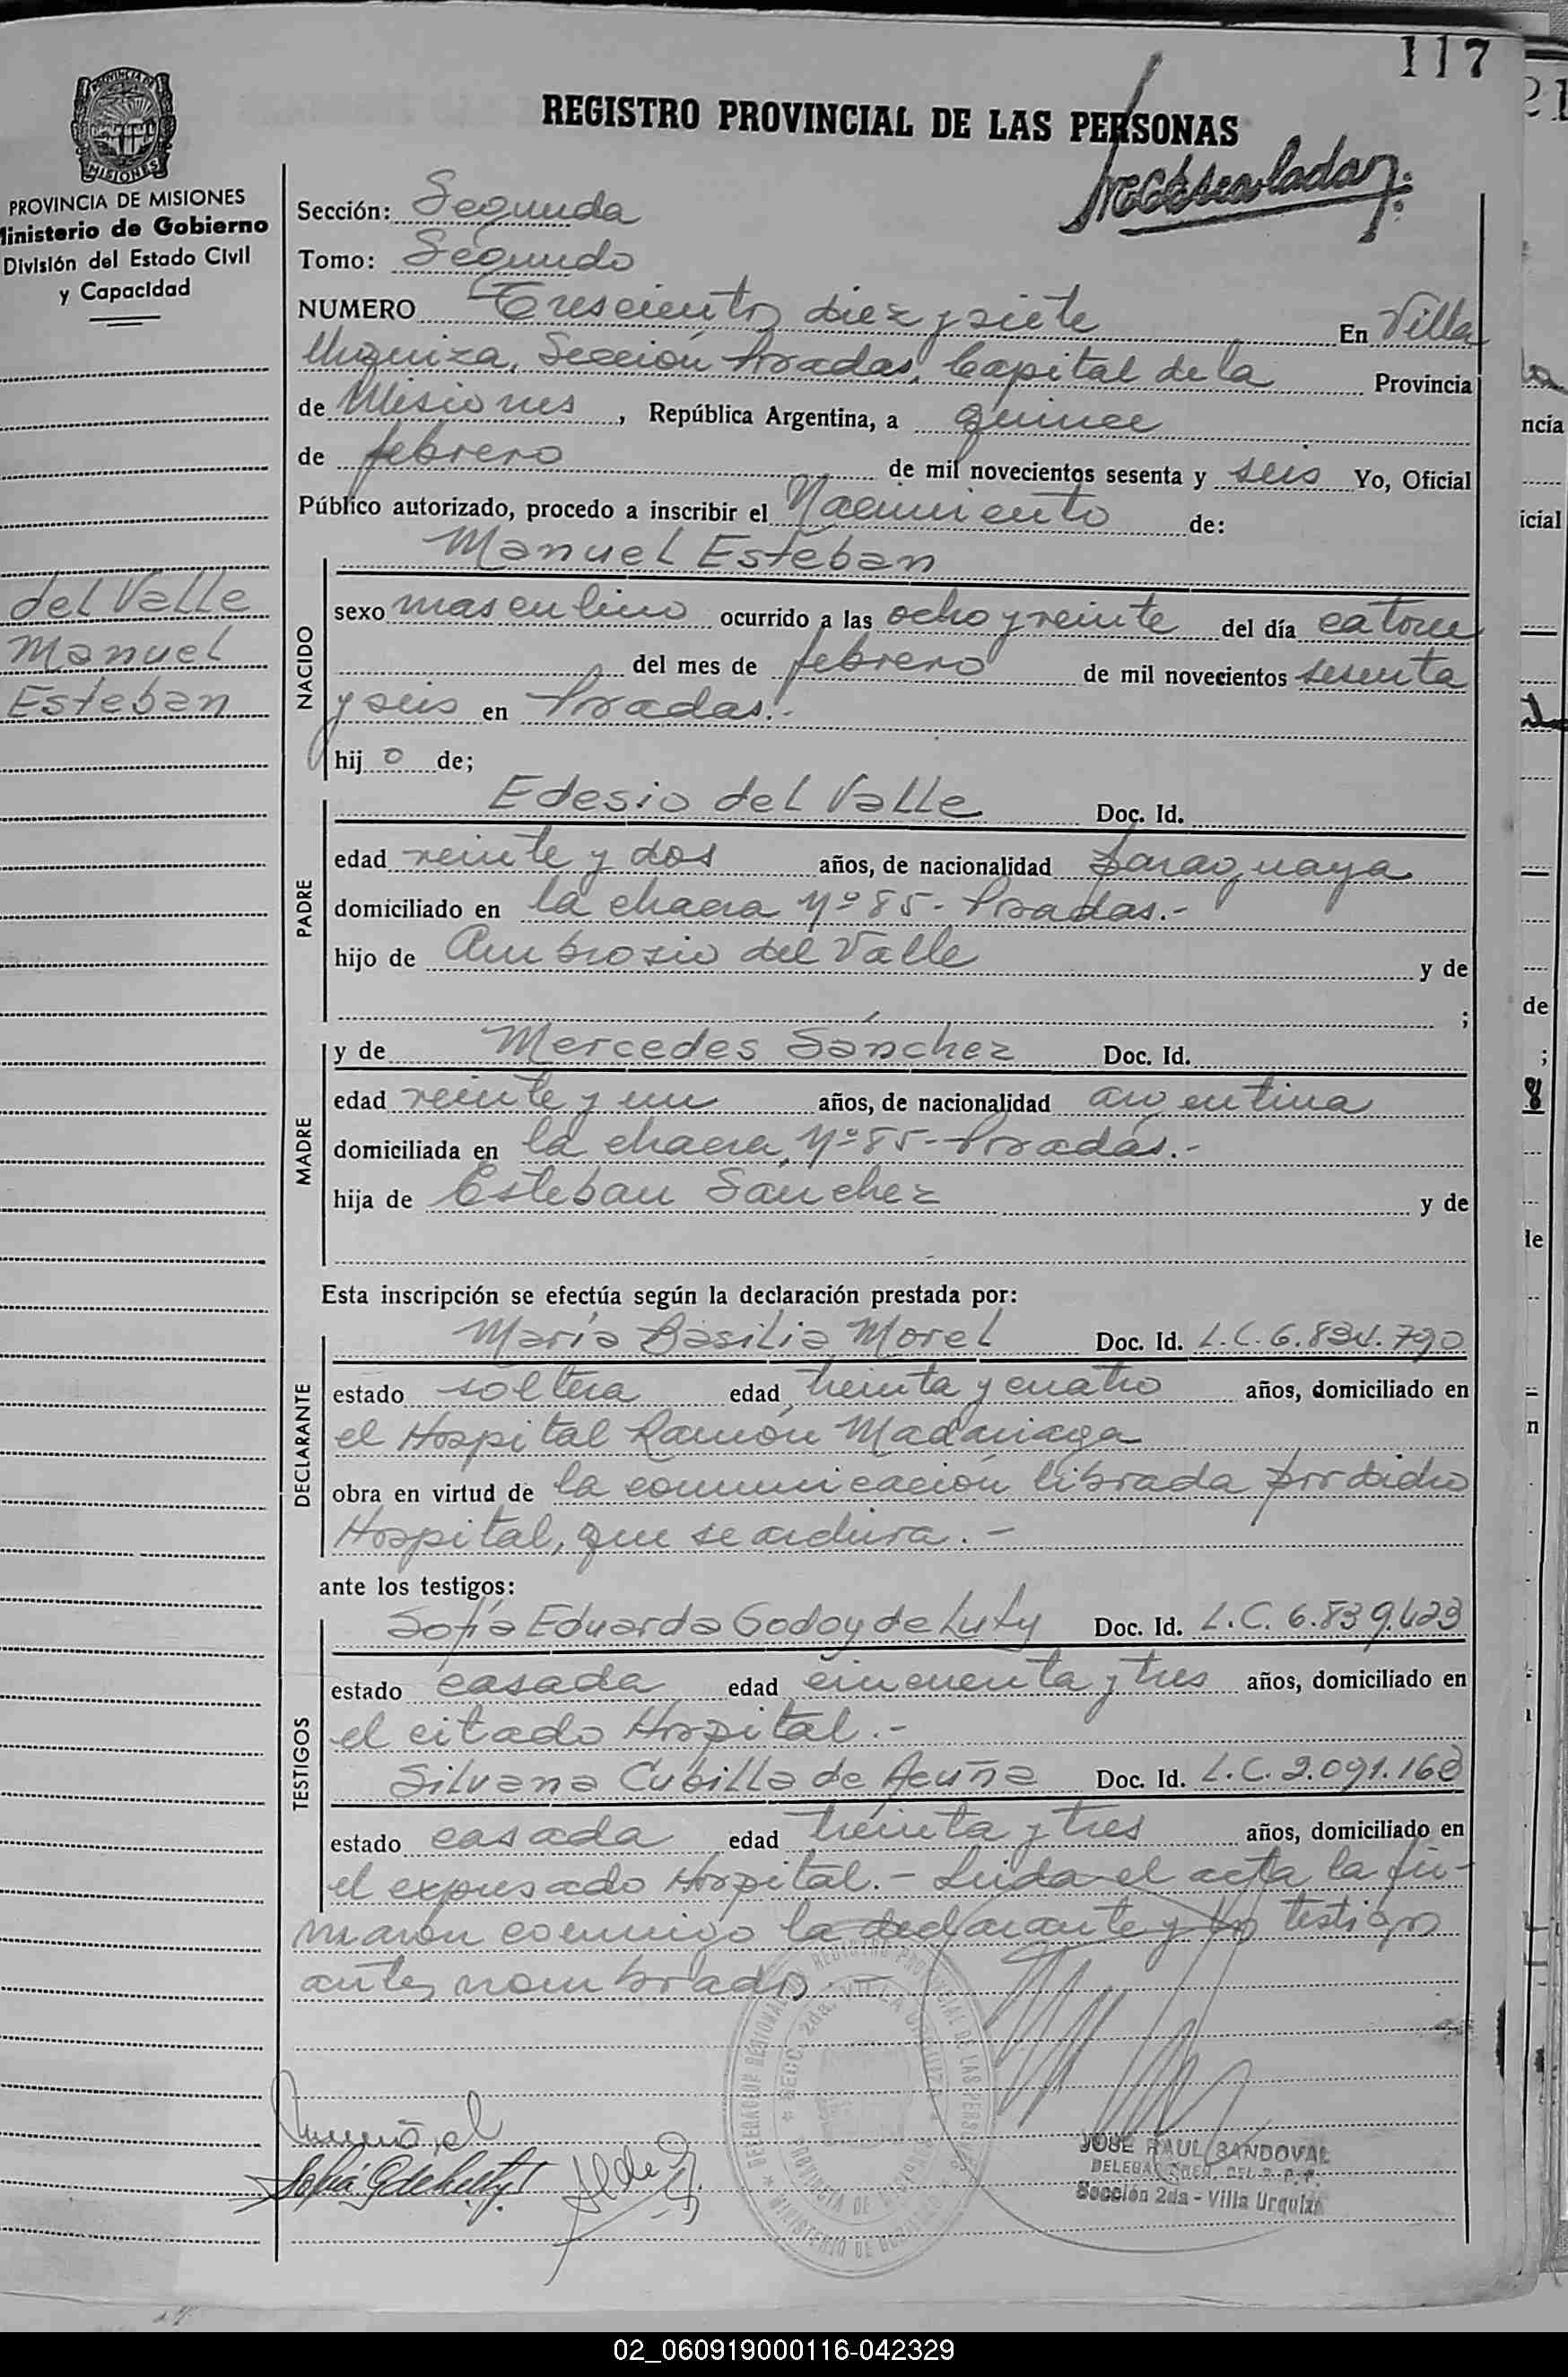 117
REGISTRO PROVINCIAL DE LAS PERSONAS
PROVINCIA DE MISIONES
MISIONES
PROVINCIA DE MISIONES
Ministerio de Gobierno
División del Estado Civil
y Capacidad
Sección: Segunda
Tomo: Segundo
NUMERO Trescientos diez y siete En Villa
Urquiza, Sección Posadas, Capital de la Provincia
de Misiones, República Argentina, a quince
de febrero de mil novecientos sesenta y seis Yo, Oficial
Público autorizado, procedo a inscribir el Nacimiento de:
Manuel Esteban
del Valle
Manuel
Esteban
NACIDO
sexo masculino ocurrido a las ocho y veinte del día catorce
del mes de febrero de mil novecientos sesenta
y seis en Posadas.-
hijo de;
PADRE
Edesio del Valle Doc. Id.
edad veinte y dos años, de nacionalidad paraguaya
domiciliado en la chacra Nº 85- Posadas.-
hijo de Ambrosio del Valle y de
;
MADRE
y de Mercedes Sánchez Doc. Id.
edad veinte y un años, de nacionalidad argentina
domiciliada en la chacra, Nº 85- Posadas.-
hija de Esteban Sánchez y de
Esta inscripción se efectúa según la declaración prestada por:
DECLARANTE
María Basilia Morel Doc. Id. L.C. 6.834.790
estado soltera edad treinta y cuatro años, domiciliado en
el Hospital Ramón Madariaga
obra en virtud de la comunicación librada por dicho
Hospital, que se archiva.-
ante los testigos:
TESTIGOS
Sofía Eduarda Godoy de Luty Doc. Id. L.C. 6.839.423
estado casada edad cincuenta y tres años, domiciliado en
el citado Hospital.-
Silvana Cubilla de Acuña Doc. Id. L.C. 2.091.168
estado casada edad treinta y tres años, domiciliado en
el expresado Hospital.- Leida el acta la fir-
maron conmigo la declarante y los testigos
antes nombrados.-
JOSE RAUL SANDOVAL
Sección 2da - Villa Urquiza
02_060919000116-042329